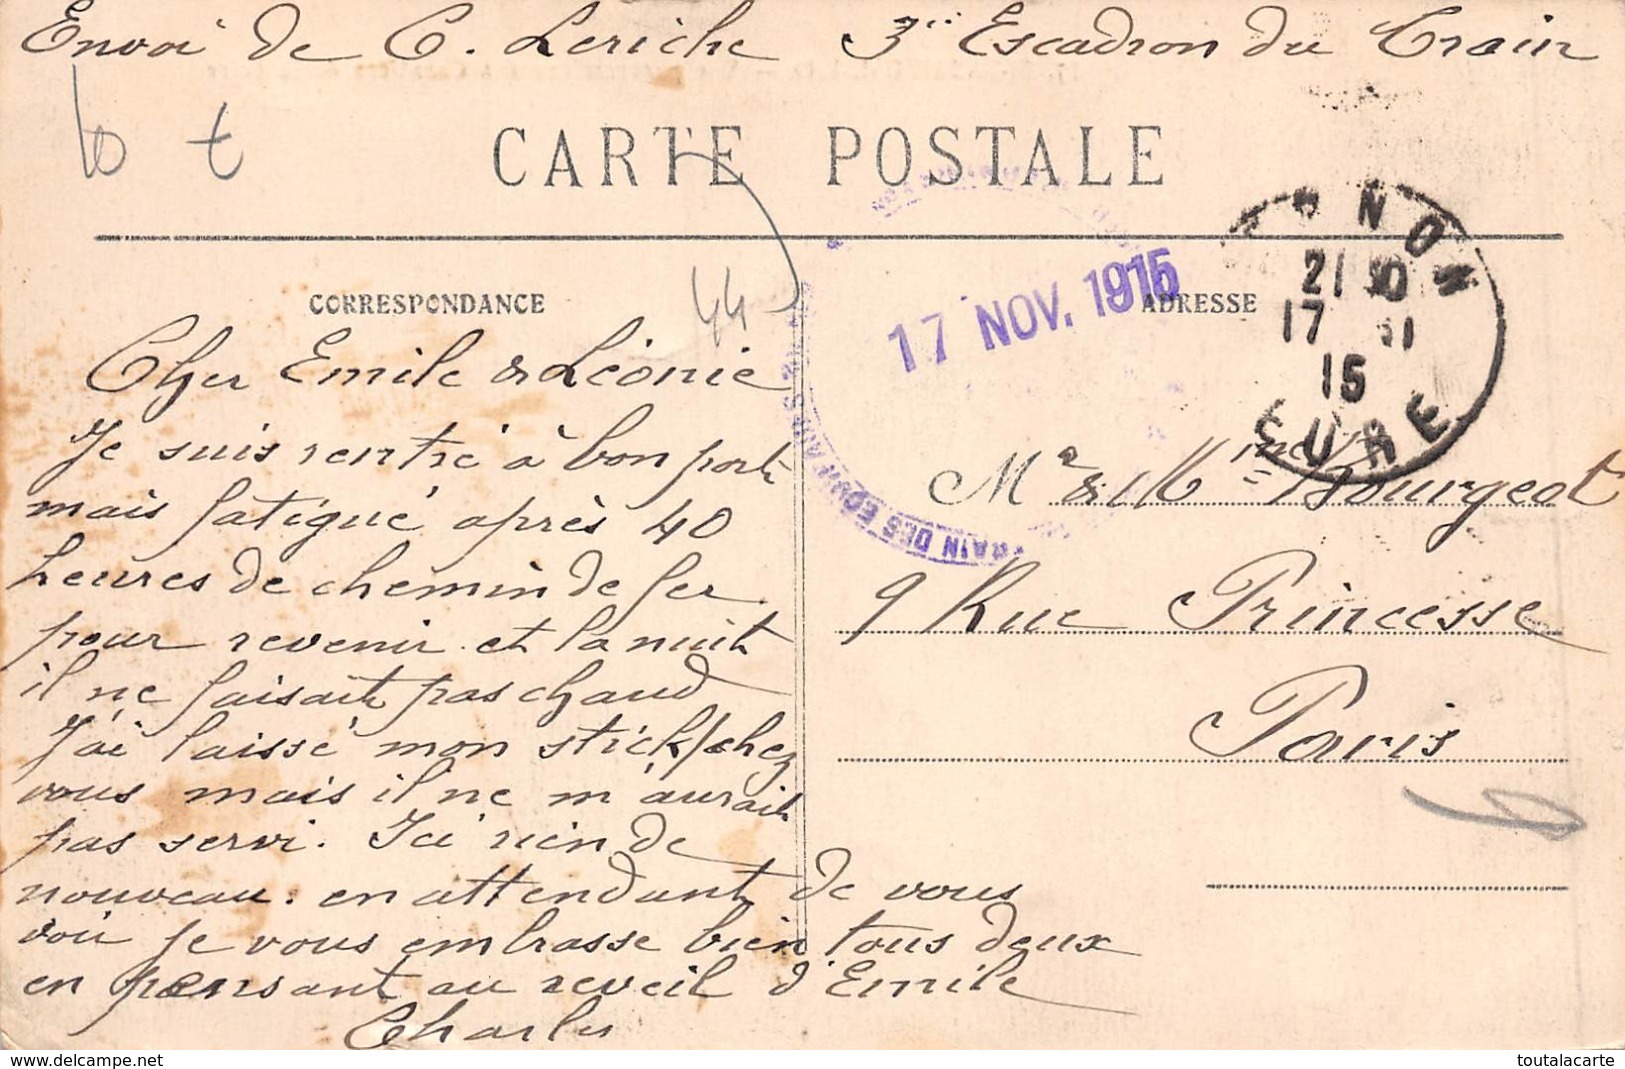 Envoi de C. Leriche 3e Escadron du Train
CARTE POSTALE
CORRESPONDANCE
ADRESSE
44
17 NOV. 1915
TRAIN DES EQUI
NON
21 30
17 11
15
EURE
Cher Emile & Léonie
Je suis rentré à bon port
mais fatigué après 40
heures de chemin de fer
pour revenir et la nuit
il ne faisait pas chaud
J'ai laissé mon stick chez
vous mais il ne m'aurait
pas servi. Ici rien de
nouveau. en attendant de vous
voir je vous embrasse bien tous deux
en pensant au reveil d'Emile
Charles
Mr & Mme Bourgeot
9 Rue Princesse
Paris
www.delcampe.net
toutalacarte